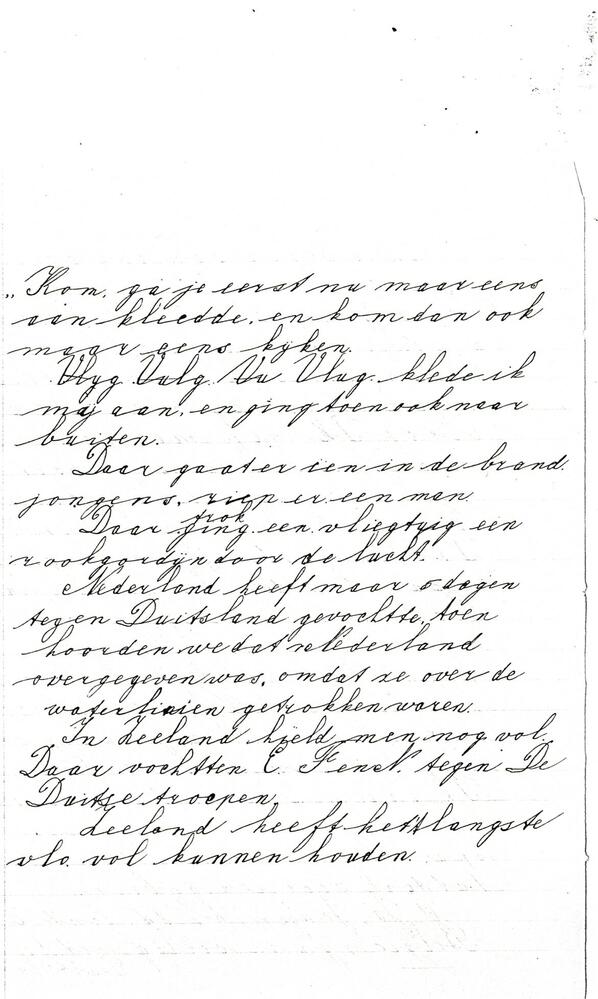 „Kom, ga je eerst nu maar eens
aan kleedde, en kom dan ook
maar eens kyken.
Vlyg. Vulg. Vu Vlug. klede ik
mij aan, en ging toen ook naar
buiten.
Daar gaat er éen in de brand.
jongens, riep er een man.
trok
Daar ging een vliegtuig een
rookgordijn door de lucht.
Nederland heeft maar 5 dagen
tegen Duitsland gevochtte, toen
hoorden we dat Nederland
overgegeven was, omdat ze over de
waterlinien getrokken waren.
In Zeeland hield men nog vol.
Daar vochtten E. F en N. tegen De
Duitse troepen.
Zeeland heeft het langste
vlo vol kunnen houden.